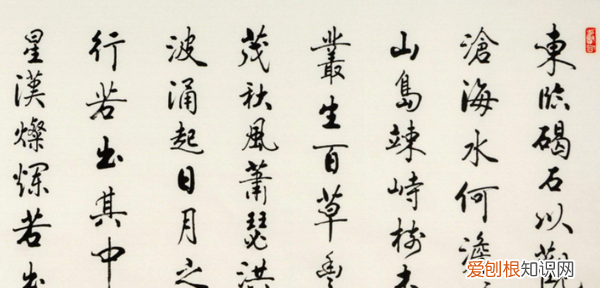 東臨碣石以觀
滄海水何澹
山島竦峙樹木
叢生百草豐
茂秋風蕭瑟洪
波涌起日月之
行若出其中
星漢燦爛若出
爱刨根知识网